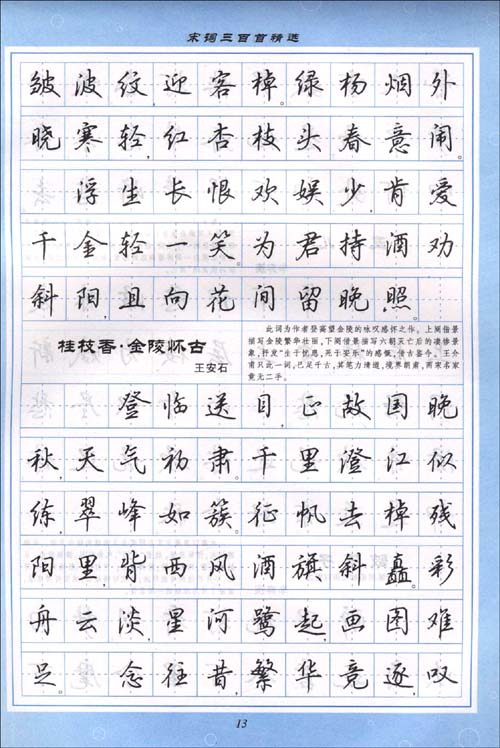 宋词三百首精选
皱波纹迎客棹。绿杨烟外
晓寒轻，红杏枝头春意闹。
浮生长恨欢娱少，肯爱
千金轻一笑。为君持酒劝
斜阳，且向花间留晚照。
桂枝香·金陵怀古
王安石
此词为作者登高望金陵的咏叹感怀之作。上阕借景
描写金陵繁华壮丽，下阕借景描写六朝灭亡后的凄惨景
象，抒发“生于忧患，死于安乐”的感慨，借古喻今。王介
甫只此一词，已足千古，其笔力清遒，境界朗肃，两宋名家
竟无二手。
登临送目，正故国晚
秋，天气初肃。千里澄江似
练，翠峰如簇。征帆去棹残
阳里，背西风酒旗斜矗。彩
舟云淡，星河鹭起，画图难
足。念往昔，繁华竞逐，叹
13